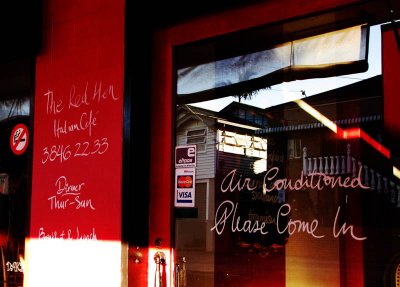 The Red Hen
Italian Café
3846 2233
Dinner
Thur-Sun
& Lunch
eftpos
MasterCard
VISA
Air Conditioned
Please Come In